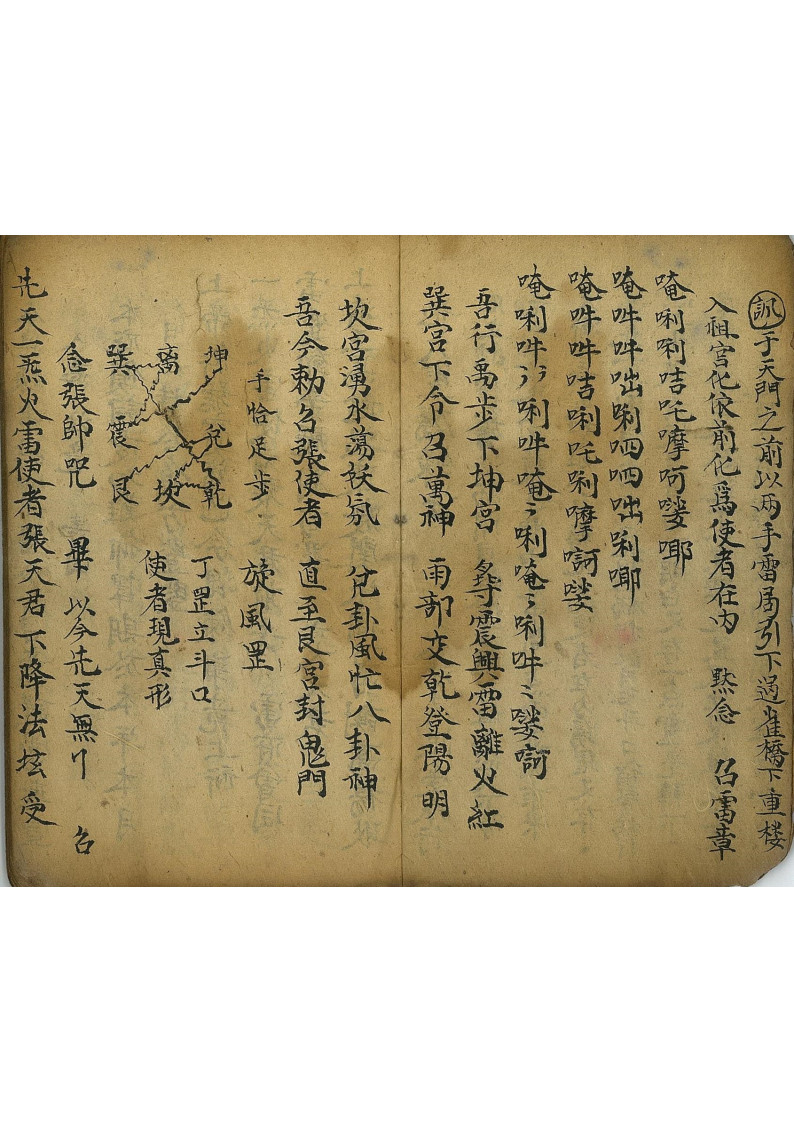 訊于天門之前以两手雷局引下過雀橋下重楼
入祖宮化依前化爲使者在内 黙念 召雷章
唵唎唎咭吒摩呵嘙耶
唵吽吽咄唎呬呬咄唎唧
唵吽吽咭唎吒唎摩訶嘙
唵唎吽ミミ唎吽唵ミ唎唵ミ唎吽ミ嘙訶
吾行禹步下坤宮 尋震興雷離火紅
巽宮下令召萬神 雨部交乾登陽明
坎宮湧水蕩妖氛 兊卦風忙八卦神
吾今勅召張使者 直至艮宮封鬼門
手恰足步 旋風罡
坤 兊 乾 丁罡立斗口
離 坎 使者現真形
巽 震 艮
念張帥咒 畢 以今先天無 召
先天一炁火雷使者張天君下降法垓受